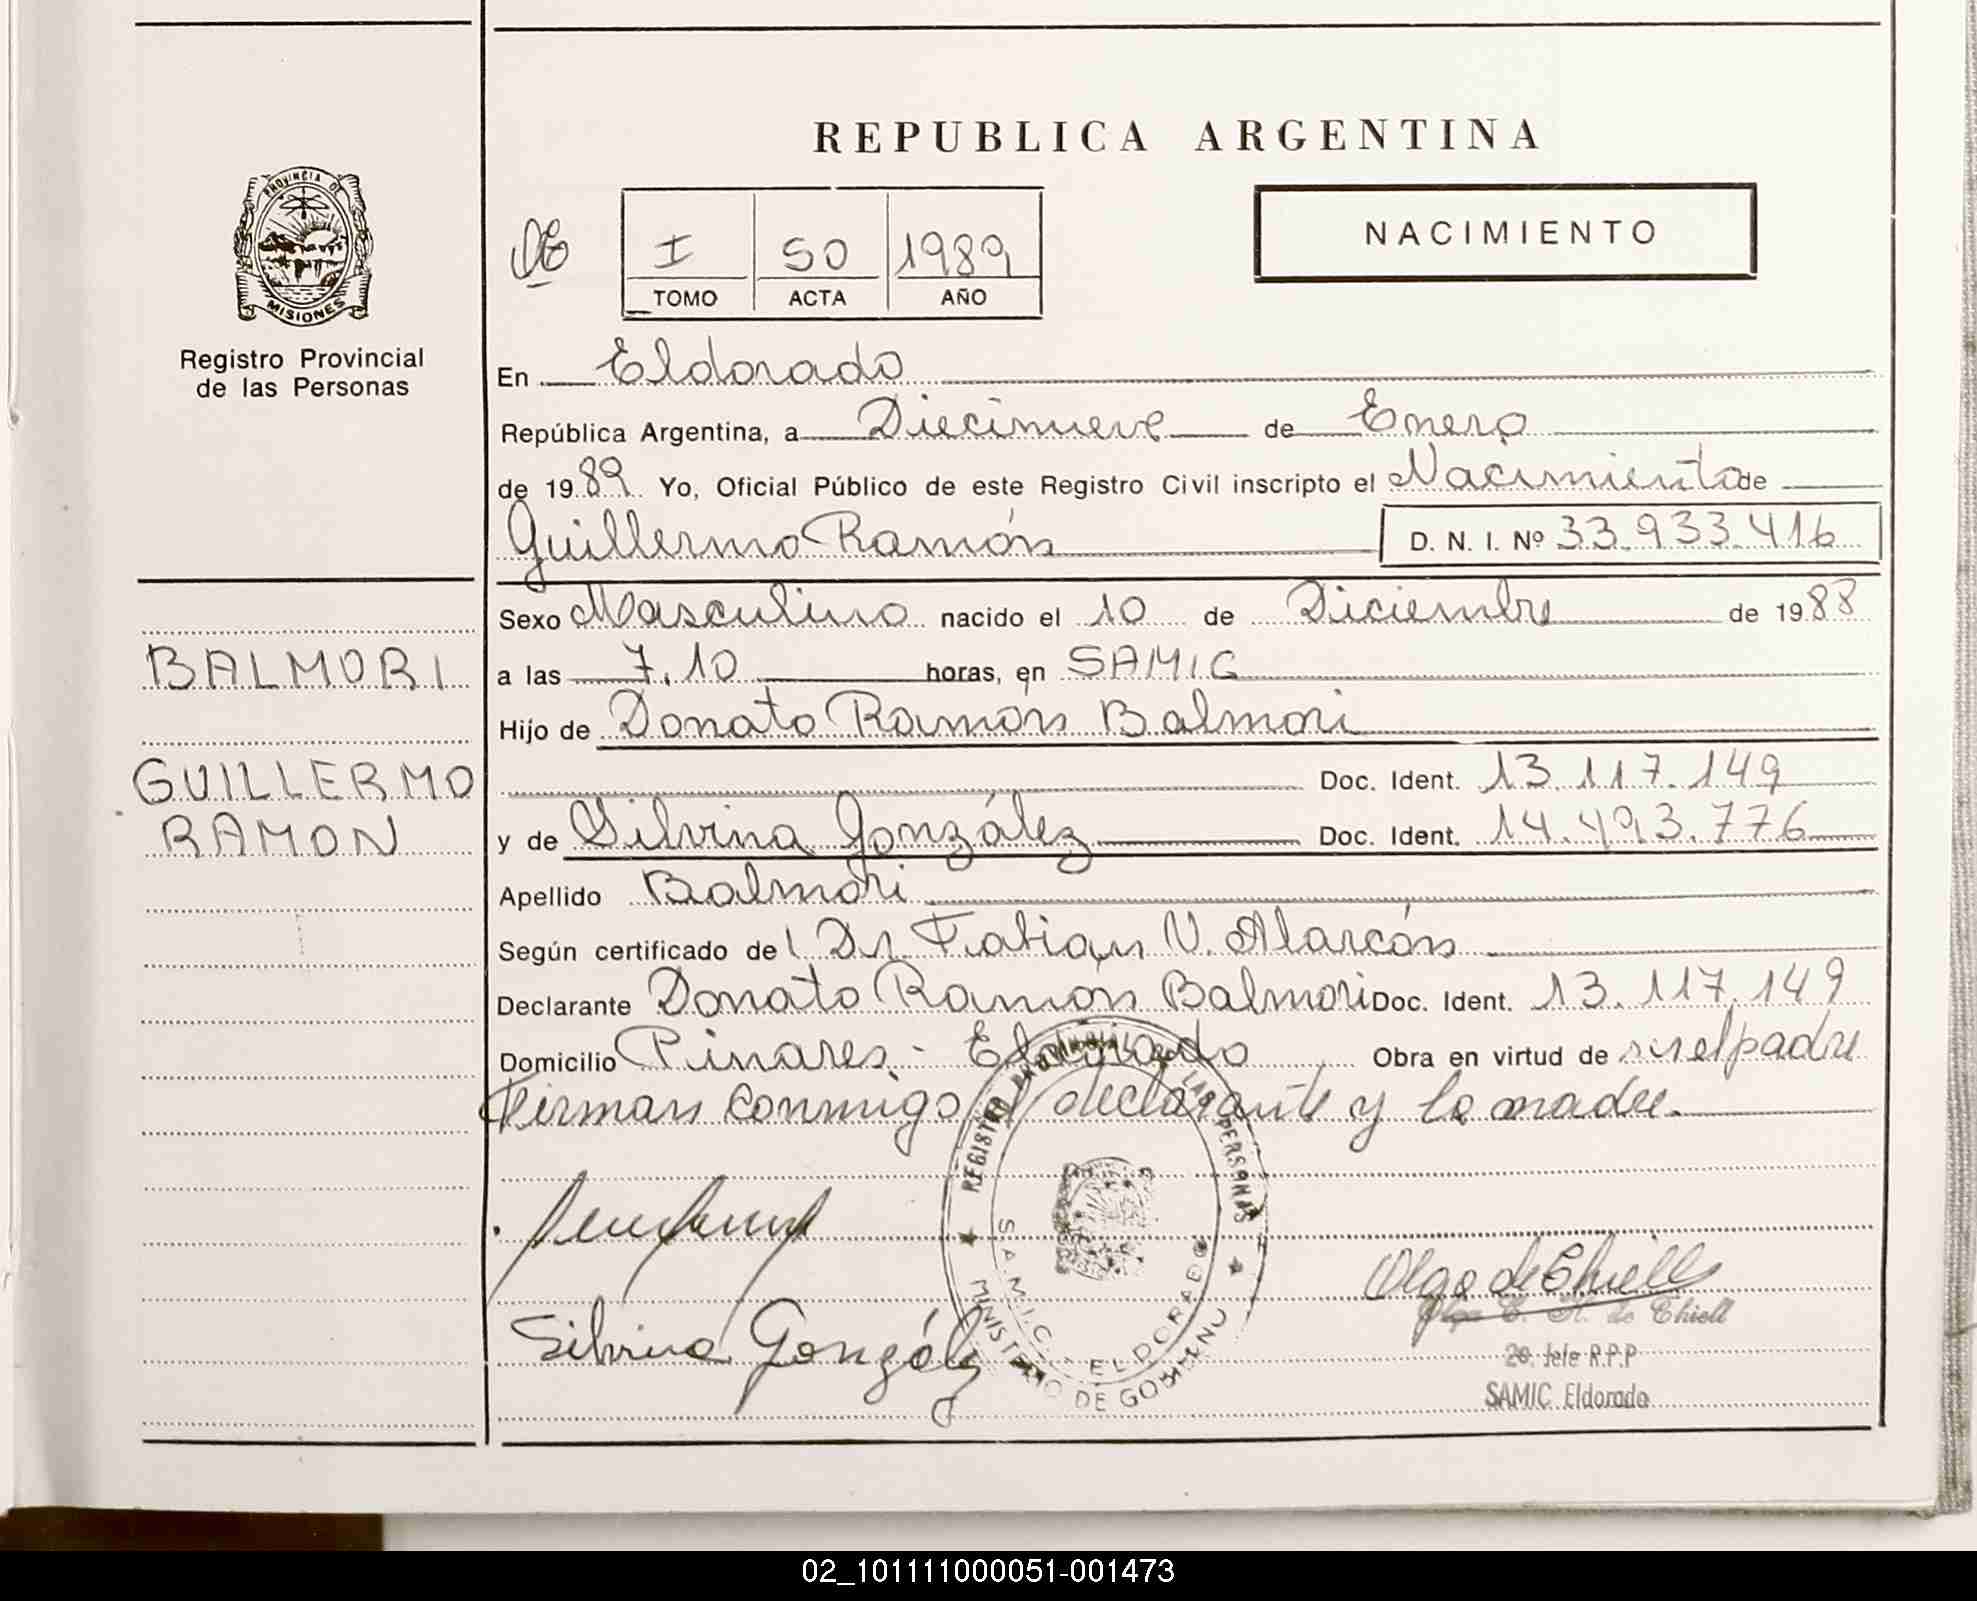 REPUBLICA ARGENTINA
NACIMIENTO
PROVINCIA DE
MISIONES
Registro Provincial
de las Personas
I 50 1989
TOMO ACTA AÑO
En Eldorado
República Argentina, a Diecinueve de Enero
de 1989 Yo, Oficial Público de este Registro Civil inscripto el Nacimiento de
Guillermo Ramón D. N. I. Nº 33.933.416
Sexo Masculino nacido el 10 de Diciembre de 1988
BALMORI
a las 7,10 horas, en SAMIC
Hijo de Donato Ramón Balmori
GUILLERMO
Doc. Ident. 13.117.149
RAMON
y de Silvina González Doc. Ident. 14.493.776
Apellido Balmori
Según certificado del Dr. Fabian V. Alarcón
Declarante Donato Ramón Balmori Doc. Ident. 13.117.149
Domicilio Pinares - Eldorado Obra en virtud de ser el padre
Firman conmigo el declarante y la madre.
REGISTRO PROVINCIAL DE LAS PERSONAS
S.A.M.I.C. ELDORADO
MINISTERIO DE GOBIERNO
Silvina González
Olga de Chiell
Olga de Chiell
2o. Jefe R.P.P
SAMIC Eldorado
02_101111000051-001473